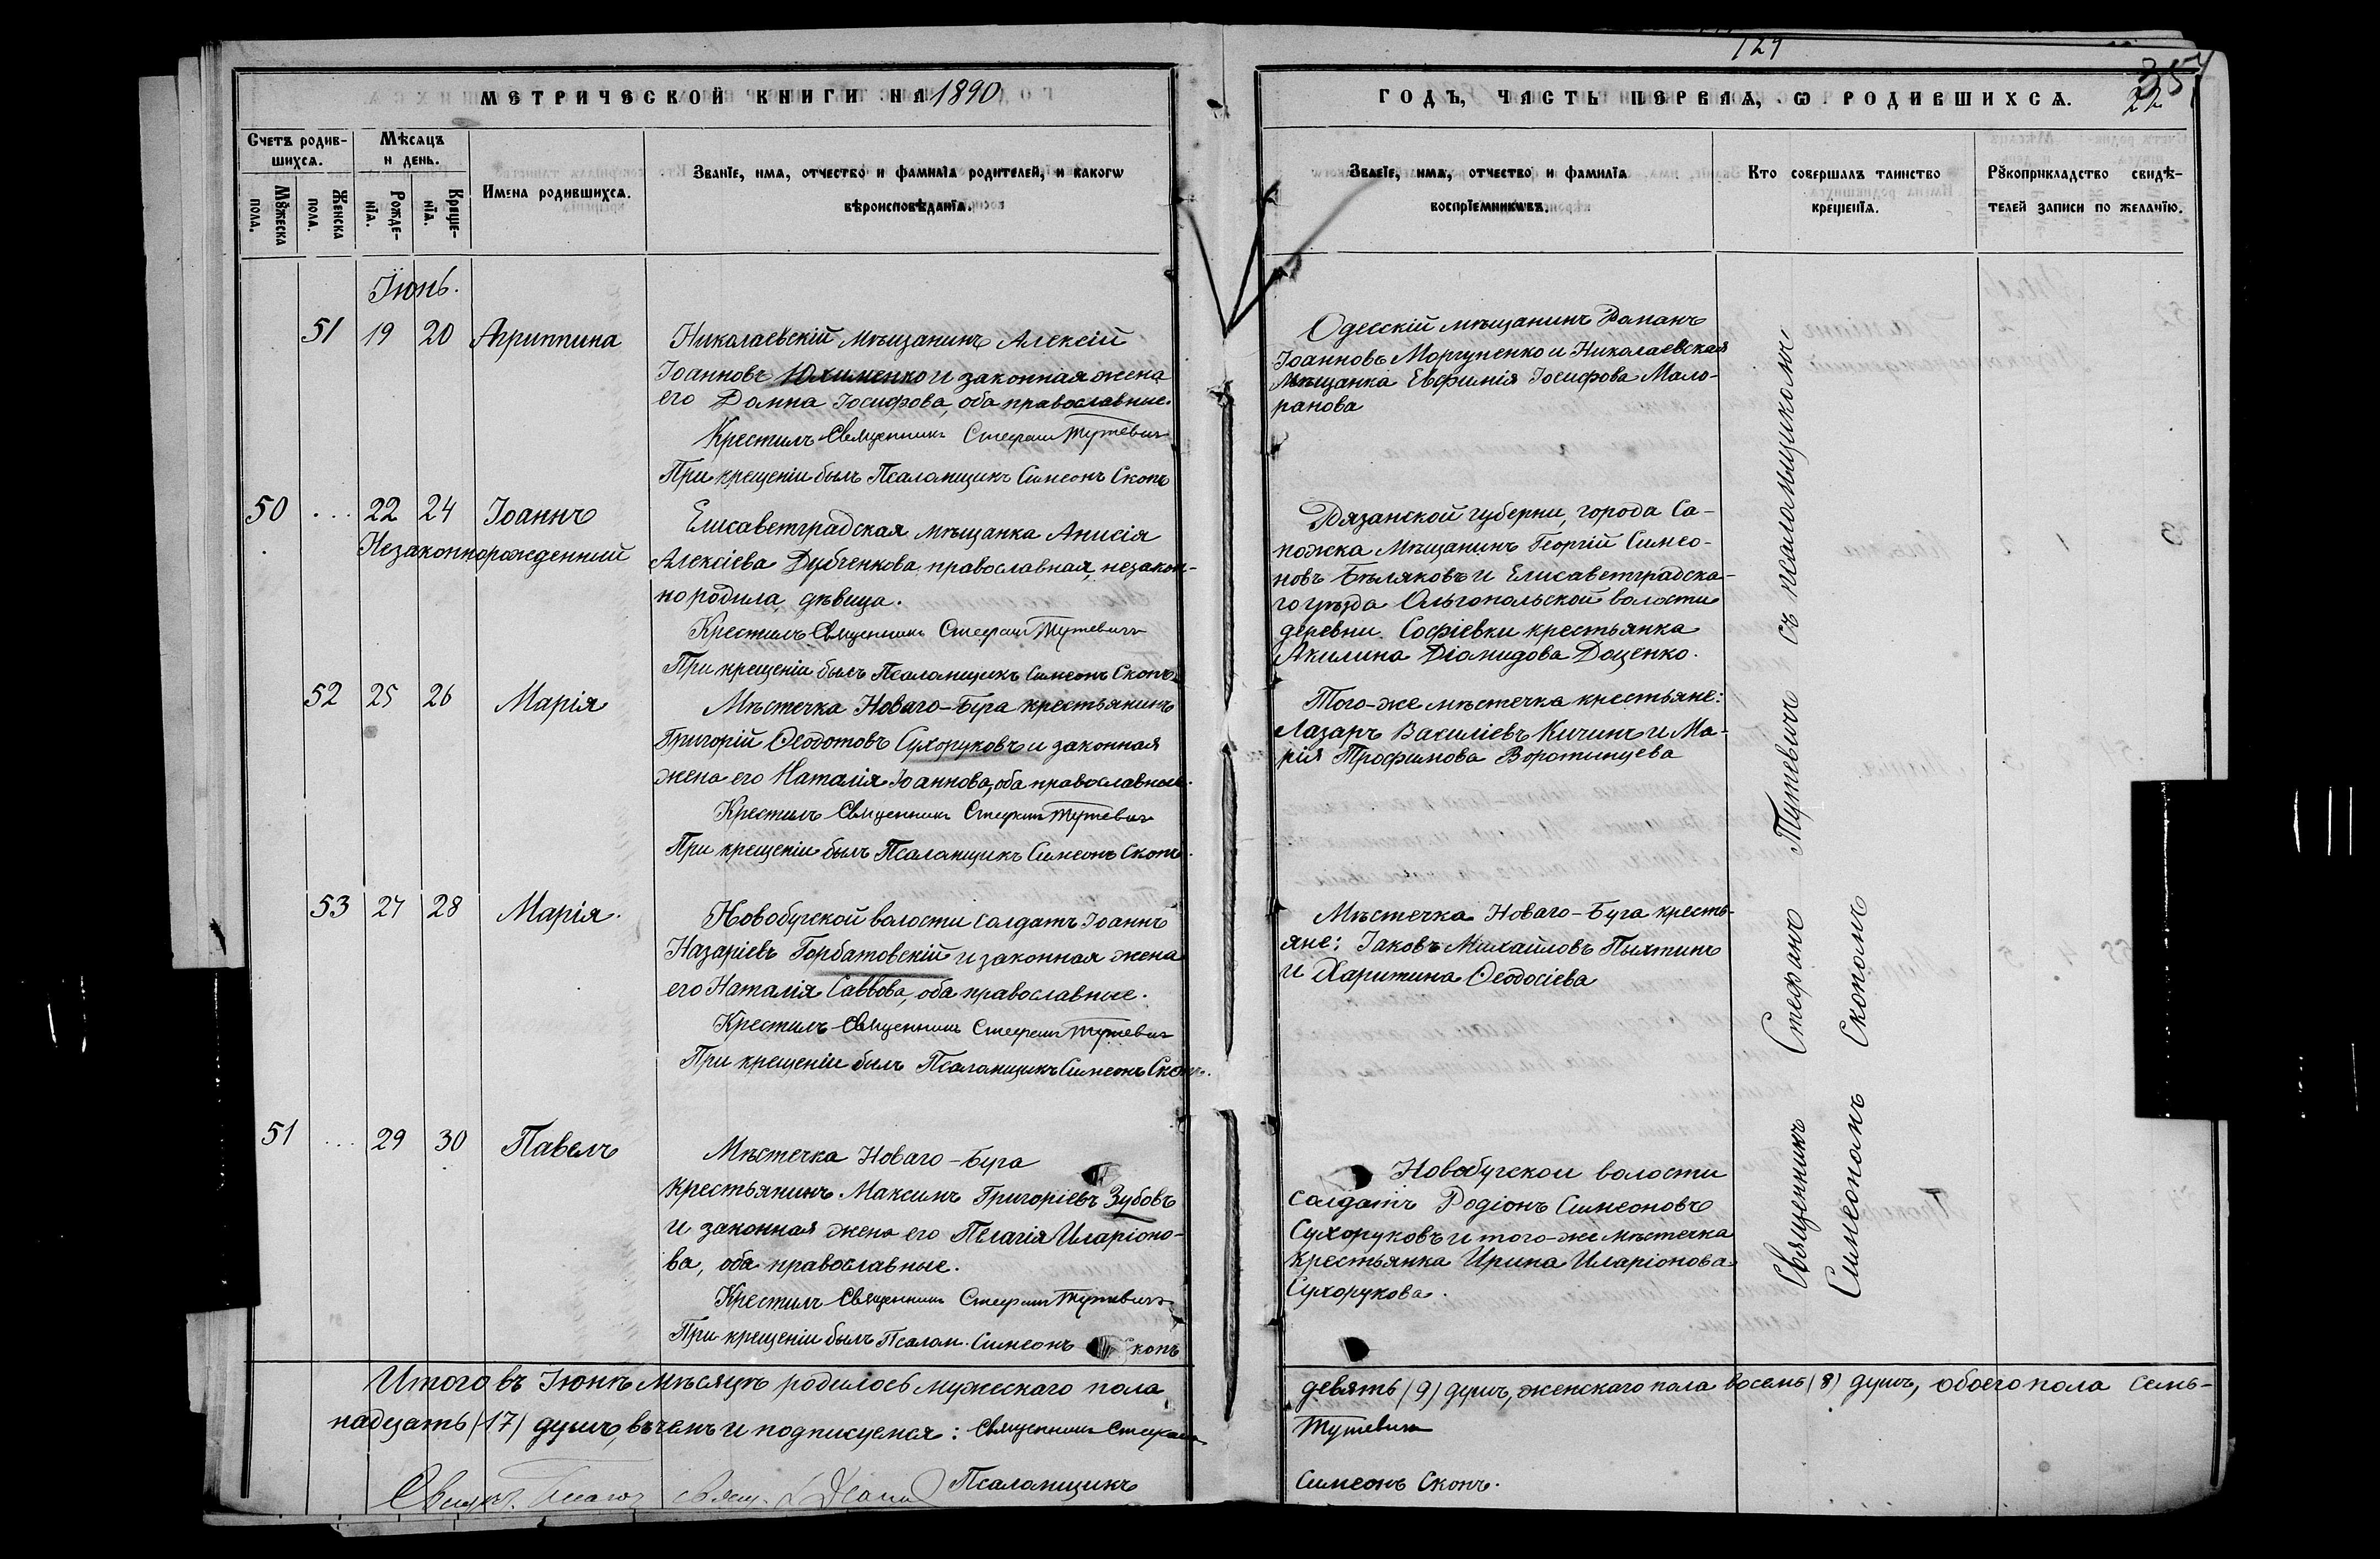 129
35
22
МЕТРИЧЕСКОЙ КНИГИ НА 1890
Счетъ родив-
шихсѧ.
Мѣсѧцъ
и день.
Мꙋжеска
пола.
Женска
пола.
Рожде-
нїѧ.
Креще-
нїѧ.
Имена родившихсѧ.
Званїе, имѧ, отчество и фамилїѧ родителей, и какогѡ
вѣроисповѣданїѧ.
Іюнь.
51 19 20 Агриппина
Николаевскій мѣщанинъ Алексій
Іоанновъ Юхименко и законная жена
его Домна Іосифова, оба православные.
Крестилъ Священникъ Стефанъ Тутевичъ
При крещеніи былъ Псаломщикъ Симеонъ Скопъ
50 ... 22 24 Іоаннъ
Незаконнорожденный
Елисаветградская мѣщанка Анисія
Алексіева Дубченкова православная, незакон-
но родила дѣвица.
Крестилъ Священникъ Стефанъ Тутевичъ
При крещеніи былъ Псаломщикъ Симеонъ Скопъ
52 25 26 Марія
Мѣстечка Новаго-Буга крестьянинъ
Григорій Ѳеодотовъ Сухоруковъ и законная
жена его Наталія Іоаннова, оба православные.
Крестилъ Священникъ Стефанъ Тутевичъ
При крещеніи былъ Псаломщикъ Симеонъ Скопъ.
53 27 28 Марія.
Новобугской волости солдатъ Іоаннъ
Назаріевъ Горбатовскій и законная жена
его Наталія Саввова, оба православные.
Крестилъ Священникъ Стефанъ Тутевичъ
При крещеніи былъ Псаломщикъ Симеонъ Скопъ.
51 ... 29 30 Павелъ
Мѣстечка Новаго-Буга
крестьянинъ Максимъ Григоріевъ Зубовъ
и законная жена его Пелагія Иларіоно-
ва, оба православные.
Крестилъ Священникъ Стефанъ Тутевичъ
При крещеніи былъ Псалом. Симеонъ Скопъ
Итого въ Іюнѣ мѣсяцѣ родилось мужескаго пола
надцать (17) душъ, въ чемъ и подписуемся: Священникъ Стефанъ
Псаломщикъ
ГОДЪ, ЧАСТЬ ПЕРВАѦ, Ѡ РОДИВШИХСѦ.
Званїе, имѧ, отчество и фамилїѧ
воспрїемникѡвъ.
Кто совершалъ таинство
крещенїѧ.
Рꙋкоприкладство свидѣ-
телей записи по желанїю.
Одесскій мѣщанинъ Романъ
Іоанновъ Моргуненко и Николаевская
мѣщанка Евфимія Іосифова Мало-
ранова
Рязанской губерни, города Са-
пожка мѣщанинъ Георгій Симео-
новъ Бѣляковъ и Елисаветградска-
го уѣзда Ольгопольской волости
деревни Софіевки крестьянка
Акилина Діомидова Доценко.
Того-же мѣстечка крестьяне:
Лазарь Василіевъ Кичинъ и Ма-
рія Трофимова Воротынцева
Мѣстечка Новаго-Буга кресть-
яне: Іаковъ Михайловъ Пыхтинъ
и Харитина Ѳеодосіева
Новобугской волости
солдатъ Родіонъ Симеоновъ
Сухоруковъ и того-же мѣстечка
крестьянка Ирина Иларіонова
Сухорукова.
Священникъ Стефанъ Тутевичъ съ псаломщикомъ
Симеономъ Скопомъ
девять (9) душъ, женскаго пола восемь (8) душъ, обоего пола семь-
Тутевичъ
Симеонъ Скопъ.